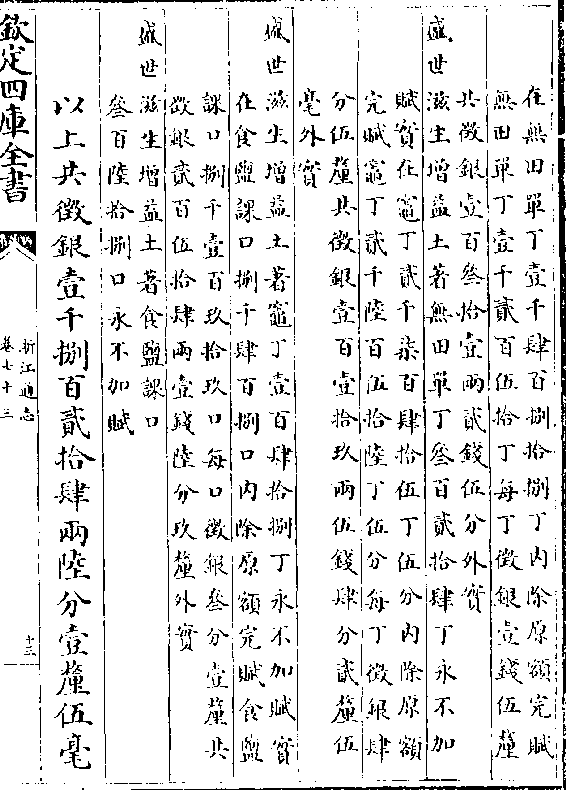 在無田單丁壹千肆百捌拾捌丁内除原額完賦
無田單丁壹千貳百伍拾丁每丁徴銀壹錢伍釐
共徴銀壹百叁拾壹兩貳錢伍分外實
盛世滋生增益土著無田單丁叁百貳拾肆丁永不加
賦實在竈丁貳千柒百肆拾伍丁伍分内除原額
完賦竈丁貳千陸百伍拾陸丁伍分每丁徴銀肆
分伍釐共徴銀壹百壹拾玖兩伍錢肆分貳釐伍
毫外實
盛世滋生增益土著竈丁壹百肆拾捌丁永不加賦實
在食鹽課口捌千肆百捌口内除原額完賦食鹽
課口捌千壹百玖拾玖口每口徴銀叁分壹釐共
徴銀貳百伍拾肆兩壹錢陸分玖釐外實
盛世滋生增益土著食鹽課口
叁百陸拾捌口永不加賦
以上共徴銀壹千捌百貳拾肆兩陸分壹釐伍毫
欽定四庫全書
浙江通志
卷七十三
十三